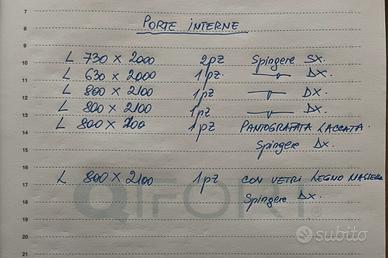 7
8 PORTE INTERNE
9
10 L 730 x 2000 2pz Spingere SX.
11 L 630 x 2000 1pz. DX.
12 L 800 x 2100 1pz DX.
13 L 800 x 2100 1pz DX.
14 L 800 x 2100 1pz PANTOGRAFATA LACCATA
15 Spingere DX.
16
17 L 800 x 2100 1pz CON VETRI LEGNO
18 Spingere DX.
19
20
21
QIFORT
subito